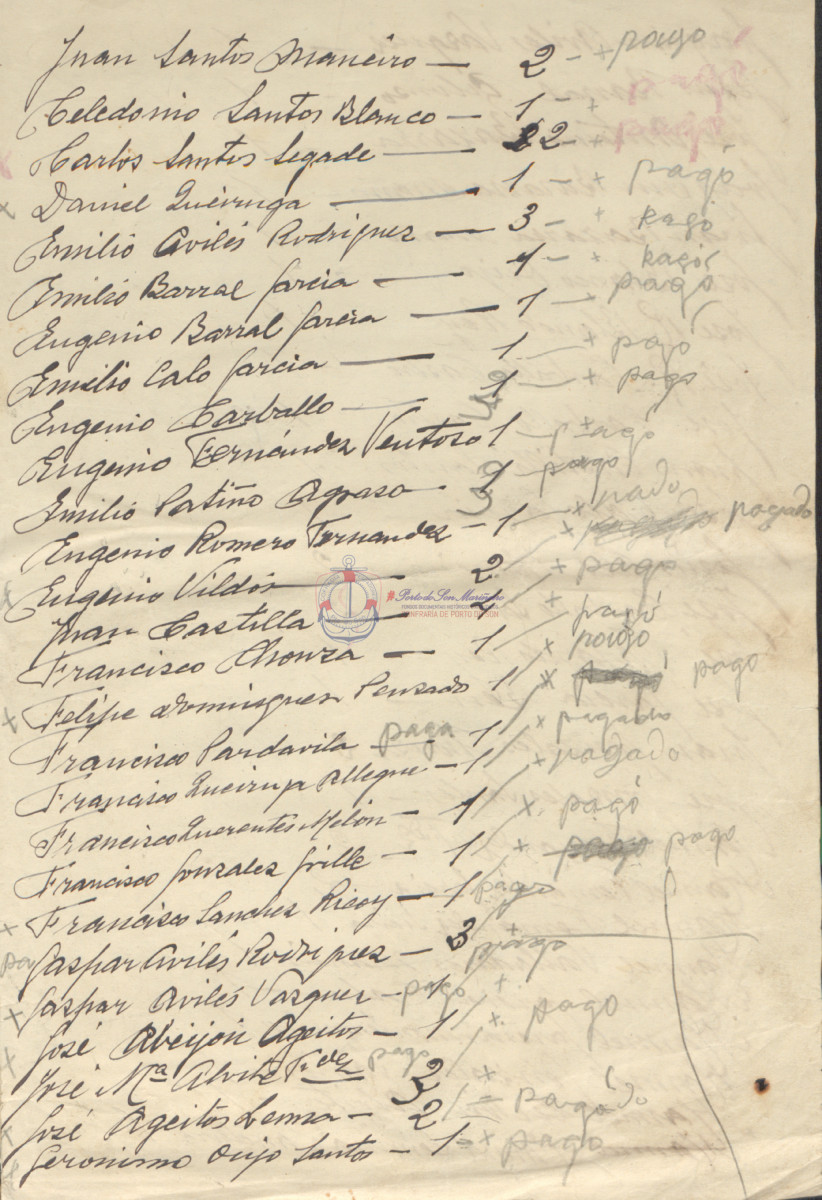 Juan Santos Maneiro — 2 - + pago
Celedonio Santos Blanco — 1 - + pago
Carlos Santos Segade — 2 2 - + pago
Daniel Queiruga — 1 - + pagó
Emilio Avilés Rodriguez — 3 - + pagó
Emilio Barral Garcia — 1 - + pagó
Eugenio Barral Garcia — 1 - + pagó
Emilio Calo Garcia — 1 - + pagó
Eugenio Carballo — 1 - + pago
Eugenio Fernández Ventoso 1 - + pagó
Emilio Patiño Agraso - pago
Eugenio Romero Fernandez - 1 + pado
Eugenio Vildós — 2 + pagado
Juan Castilla — 2 + pago
Francisco Chouza — 1 + pagó
Felipe Dominguez Penzado 1 x pago
Francisco Pardavila — paga 1 x pago
Francisco Queiruga Allegue - 1 + pagado
Francisco Querentes Melón - 1 + pagado
Francisco Gonzalez Grille - 1 x pagó
Francisco Sanchez Ricoy - 1 pago
Gaspar Avilés Rodriguez - 3 + pago
Gaspar Avilés Vazquez - 1 pago +
José Abeijón Ageitos - 1 x pago
José Mª Alvite Fdez pago
José Ageitos Lema - 2 + = pagado
Geronimo Oujo Santos - 1 = + pago
Porto do Son Mariñeiro
CONFRARÍA DE PORTO DO SON